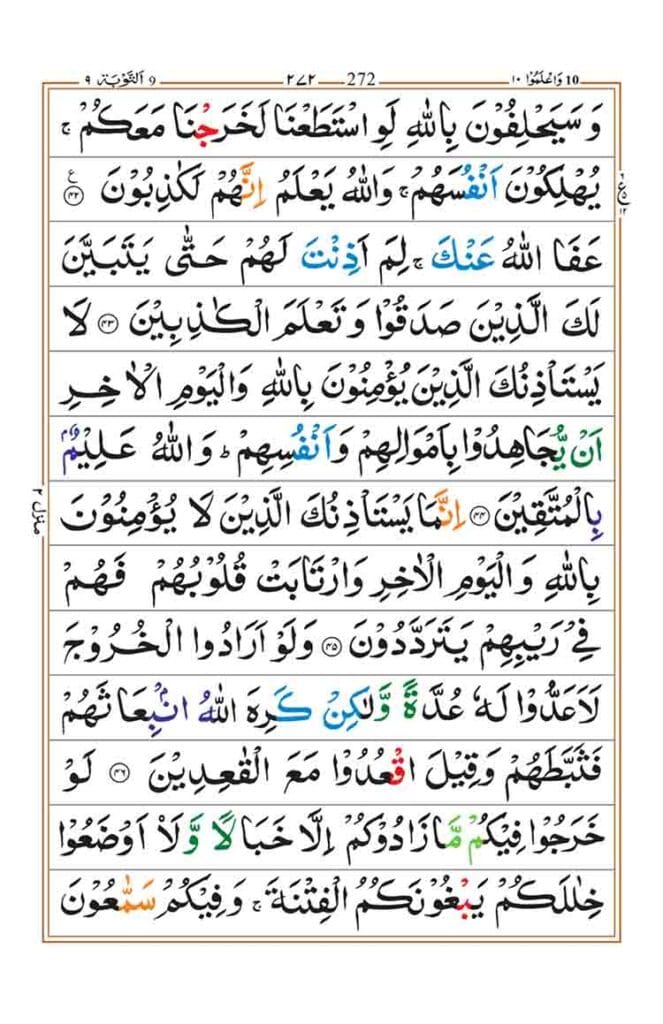 10 وَاعْلَمُوْٓا ١٠ 272 ٢٧٢ 9 اَلتَّوْبَة ٩
وَ سَيَحْلِفُوْنَ بِاللّٰهِ لَوِ اسْتَطَعْنَا لَخَرَجْنَا مَعَكُمْ ۚ
يُهْلِكُوْنَ اَنْفُسَهُمْ ۚ وَاللّٰهُ يَعْلَمُ اِنَّهُمْ لَكٰذِبُوْنَ ۝٤٢ ع
عَفَا اللّٰهُ عَنْكَ ۚ لِمَ اَذِنْتَ لَهُمْ حَتّٰى يَتَبَيَّنَ
لَكَ الَّذِيْنَ صَدَقُوْا وَ تَعْلَمَ الْكٰذِبِيْنَ ۝٤٣ لَا
يَسْتَاْذِنُكَ الَّذِيْنَ يُؤْمِنُوْنَ بِاللّٰهِ وَالْيَوْمِ الْاٰخِرِ
اَنْ يُّجَاهِدُوْا بِاَمْوَالِهِمْ وَاَنْفُسِهِمْ ؕ وَاللّٰهُ عَلِيْمٌۢ
بِالْمُتَّقِيْنَ ۝٤٤ اِنَّمَا يَسْتَاْذِنُكَ الَّذِيْنَ لَا يُؤْمِنُوْنَ
منزل ٢
بِاللّٰهِ وَالْيَوْمِ الْاٰخِرِ وَارْتَابَتْ قُلُوْبُهُمْ فَهُمْ
فِيْ رَيْبِهِمْ يَتَرَدَّدُوْنَ ۝٤٥ وَلَوْ اَرَادُوا الْخُرُوْجَ
لَاَعَدُّوْا لَهٗ عُدَّةً وَّلٰكِنْ كَرِهَ اللّٰهُ انْۢبِعَاثَهُمْ
فَثَبَّطَهُمْ وَقِيْلَ اقْعُدُوْا مَعَ الْقٰعِدِيْنَ ۝٤٦ لَوْ
خَرَجُوْا فِيْكُمْ مَّا زَادُوْكُمْ اِلَّا خَبَالًا وَّ لَا۟اَوْضَعُوْا
خِلٰلَكُمْ يَبْغُوْنَكُمُ الْفِتْنَةَ ۚ وَفِيْكُمْ سَمّٰعُوْنَ